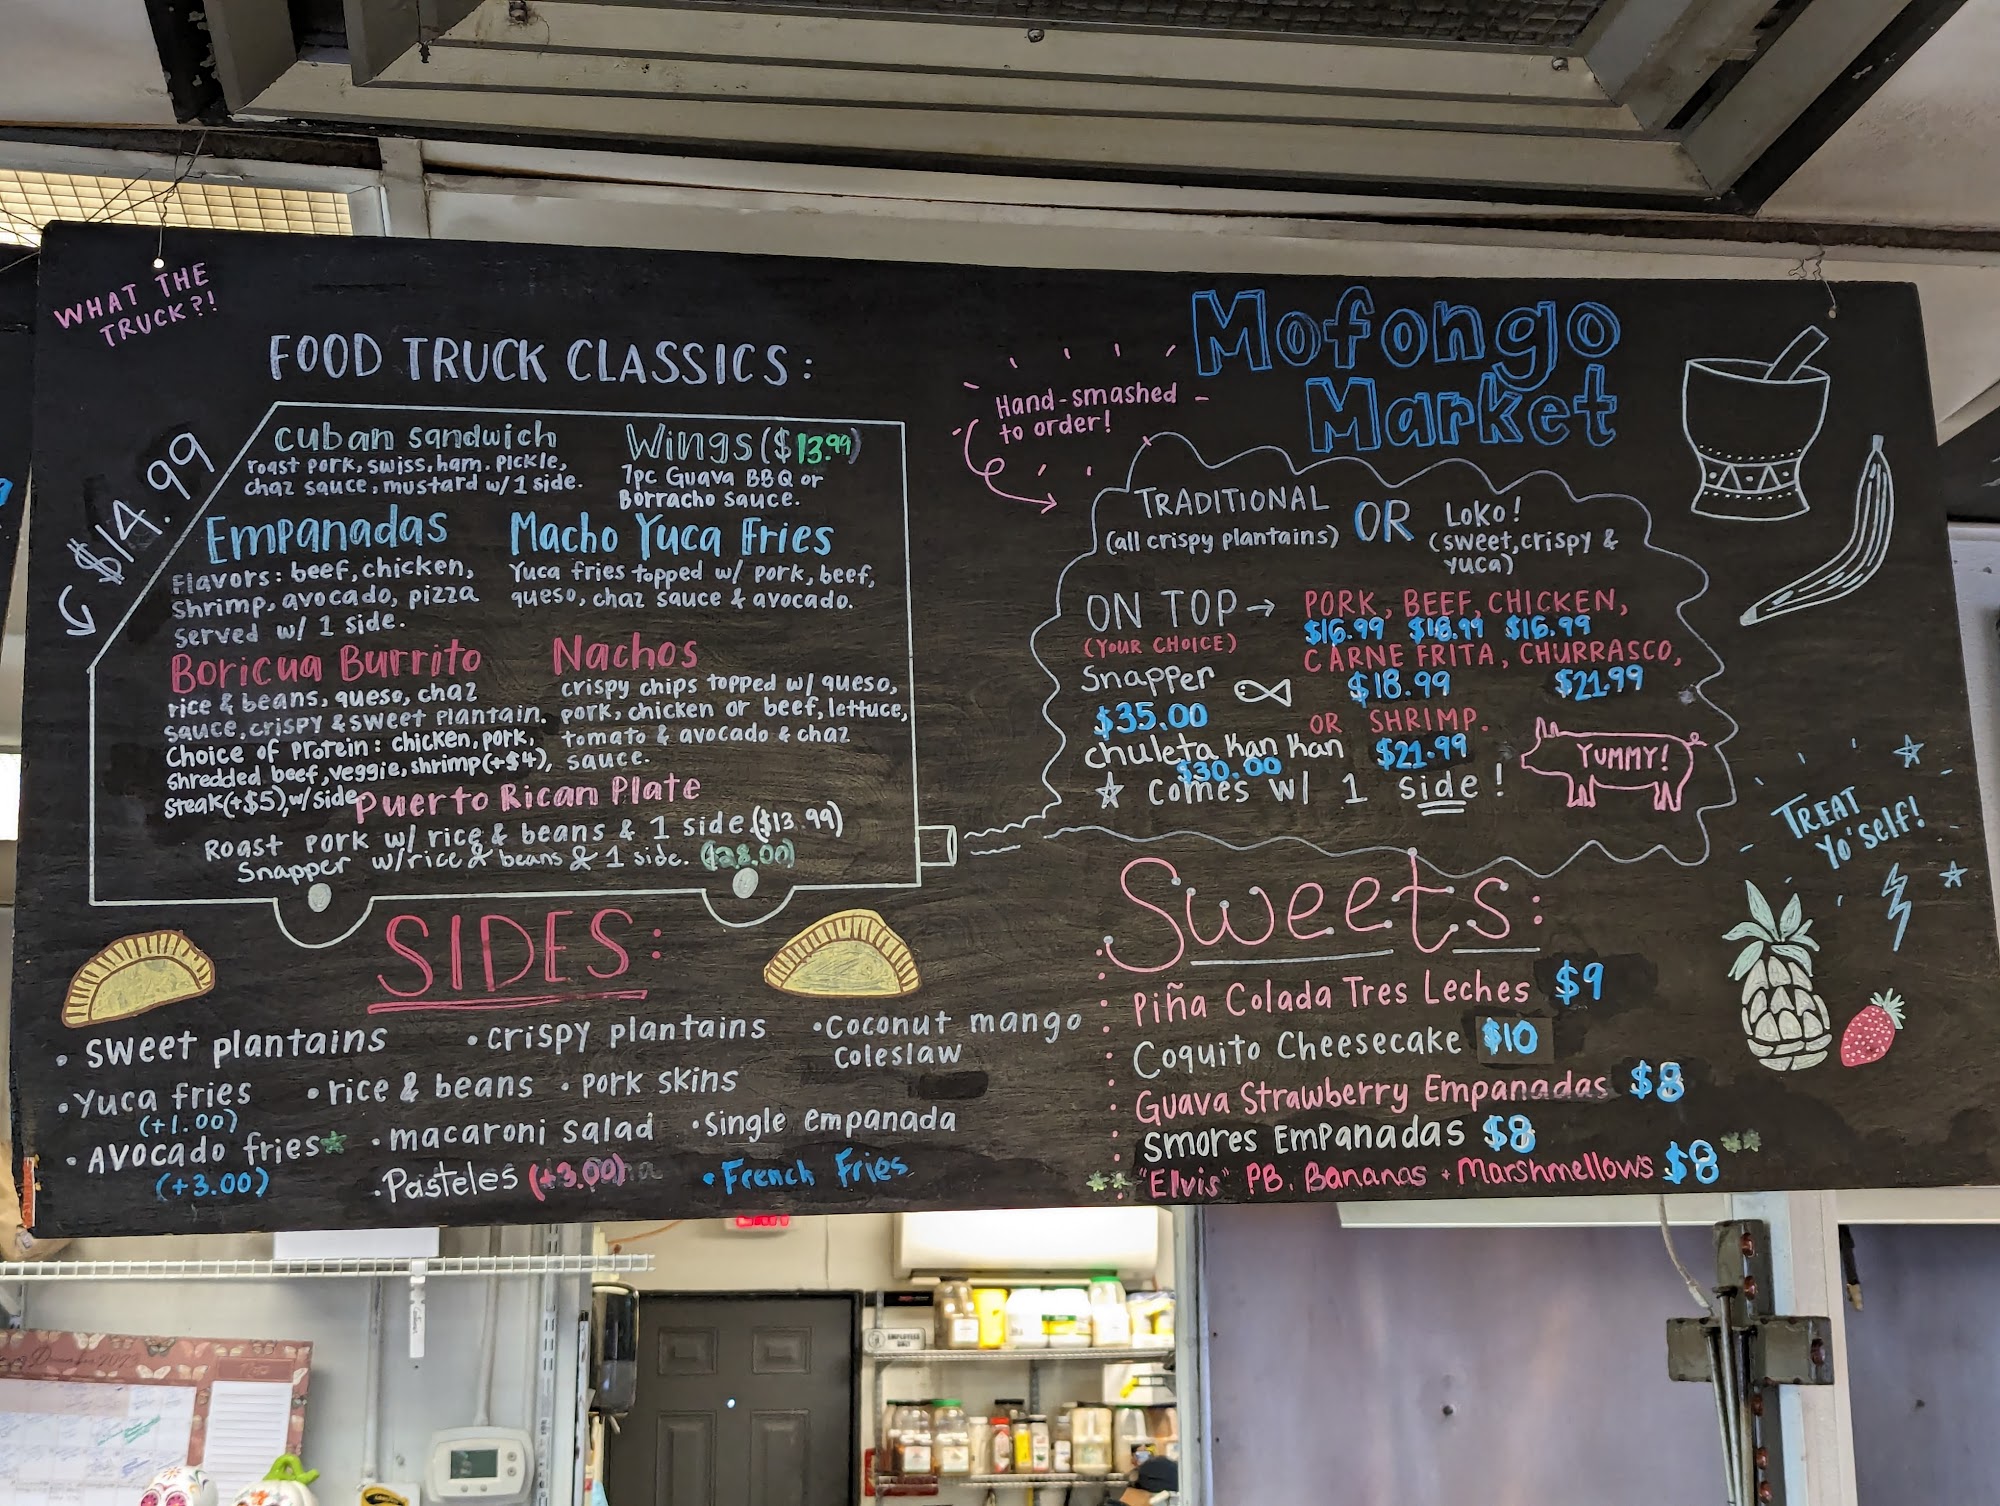 WHAT THE
TRUCK?!
FOOD TRUCK CLASSICS:
$14.99
Cuban Sandwich
roast pork, swiss, ham. Pickle,
chaz sauce, mustard w/ 1 side.
Wings ($13.99)
7pc Guava BBQ or
Borracho sauce.
Empanadas
Flavors: beef, chicken,
Shrimp, avocado, pizza
Served w/ 1 side.
Macho Yuca Fries
Yuca fries topped w/ pork, beef,
queso, chaz sauce & avocado.
Boricua Burrito
rice & beans, queso, chaz
sauce, crispy & sweet plantain.
Choice of Protein: chicken, pork,
shredded beef, veggie, shrimp (+$4),
Steak (+$5), w/ side
Nachos
crispy chips topped w/ queso,
pork, chicken or beef, lettuce,
tomato & avocado & chaz
sauce.
Puerto Rican Plate
Roast pork w/ rice & beans & 1 side ($13.99)
Snapper w/ rice & beans & 1 side. ($28.00)
SIDES:
• sweet plantains
• crispy plantains
• Coconut mango
coleslaw
• Yuca fries
(+1.00)
• rice & beans
• pork skins
• Avocado fries
(+3.00)
• macaroni salad
• single empanada
• Pasteles (+3.00)
• French Fries
Mofongo
Market
Hand-smashed
to order!
TRADITIONAL
(all crispy plantains)
OR
Loko!
(sweet, crispy &
yuca)
ON TOP →
(YOUR CHOICE)
PORK, BEEF, CHICKEN,
$16.99 $18.99 $16.99
CARNE FRITA, CHURRASCO,
$18.99 $21.99
OR SHRIMP.
$21.99
Snapper
$35.00
chuleta Kan Kan
$30.00
☆ Comes w/ 1 side!
YUMMY!
Sweets:
Piña Colada Tres Leches $9
Coquito Cheesecake $10
Guava Strawberry Empanadas $8
Smores Empanadas $8
"Elvis" PB, Bananas + Marshmellows $8
TREAT
Yo'self!